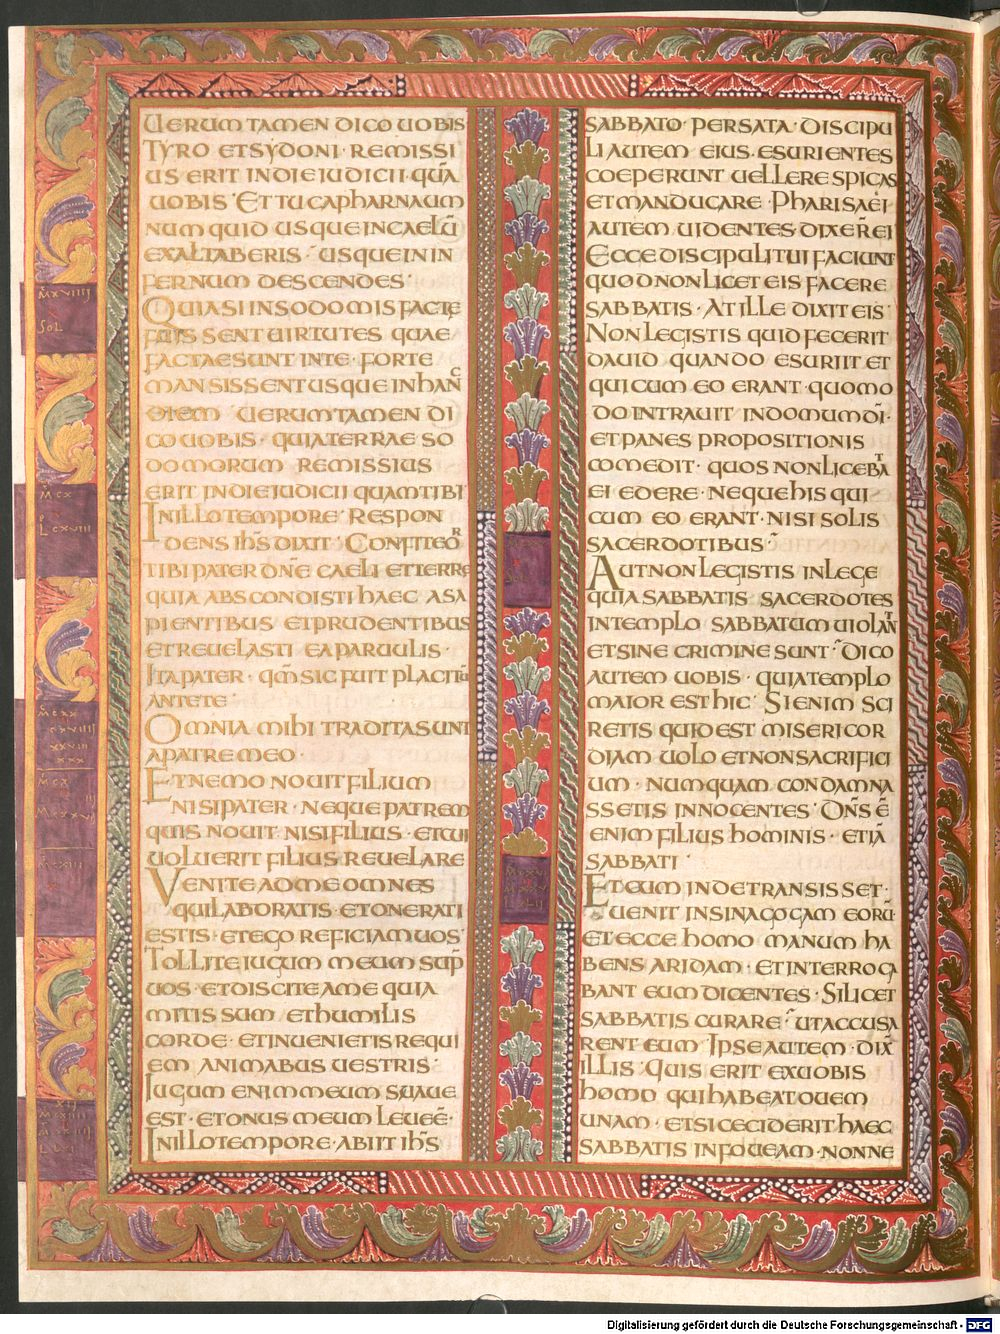 UERUM TAMEN DICO UOBIS
TYRO ET SYDONI · REMISSI
US ERIT IN DIE IUDICII · QUĀ
UOBIS · ET TU CAPHARNAUM
NUMQUID USQUE IN CAELŪ
EXALTABERIS · USQUE IN IN
FERNUM DESCENDES ·
QUIA SI IN SODOMIS FACTE
FUISSENT UIRTUTES QUAE
FACTAE SUNT IN TE · FORTE
MANSISSENT USQUE IN HANC
DIEM UERUM TAMEN DI
CO UOBIS · QUIA TERRAE SO
DOMORUM REMISSIUS
ERIT IN DIE IUDICII QUAM TIBI
IN ILLO TEMPORE · RESPON
DENS IH̄S DIXIT · CONFITEOR
TIBI PATER DN̄E CAELI ET TERRE
QUIA ABSCONDISTI HAEC A SA
PIENTIBUS ET PRUDENTIBUS
ET REUELASTI EA PARUULIS ·
ITA PATER · QM̄ SIC FUIT PLACITŪ
ANTE TE ·
OMNIA MIHI TRADITA SUNT
A PATRE MEO ·
ET NEMO NOUIT FILIUM
NISI PATER · NEQUE PATREM
QUIS NOUIT NISI FILIUS · ET CUI
UOLUERIT FILIUS REUELARE
VENITE AD ME OMNES
QUI LABORATIS ET ONERATI
ESTIS · ET EGO REFICIAM UOS ·
TOLLITE IUGUM MEUM SUP̄
UOS · ET DISCITE A ME QUIA
MITIS SUM ET HUMILIS
CORDE · ET INUENIETIS REQUI
EM ANIMABUS UESTRIS ·
IUGUM ENIM MEUM SUAUE
EST · ET ONUS MEUM LEUE Ē ·
IN ILLO TEMPORE · ABIIT IH̄S
SABBATO · PER SATA · DISCIPU
LI AUTEM EIUS · ESURIENTES
COEPERUNT UELLERE SPICAS
ET MANDUCARE · PHARISAEI
AUTEM UIDENTES · DIXER̄ EI
ECCE DISCIPULI TUI FACIUNT
QUOD NON LICET EIS FACERE
SABBATIS · AT ILLE DIXIT EIS ·
NON LEGISTIS QUID FECERIT
DAUID QUANDO ESURIIT ET
QUI CUM EO ERANT · QUOMO
DO INTRAUIT IN DOMUM DĪ ·
ET PANES PROPOSITIONIS
COMEDIT · QUOS NON LICEBAT
EI EDERE · NEQUE HIS QUI
CUM EO ERANT · NISI SOLIS
SACERDOTIBUS ·
AUT NON LEGISTIS IN LEGE
QUIA SABBATIS SACERDOTES
IN TEMPLO SABBATUM UIOLANT
ET SINE CRIMINE SUNT · DICO
AUTEM UOBIS · QUIA TEMPLO
MAIOR EST HIC · SI ENIM SCI
RETIS QUID EST MISERICOR
DIAM UOLO ET NON SACRIFICI
UM · NUMQUAM CONDEMNA
SSETIS INNOCENTES · DN̄S Ē
ENIM FILIUS HOMINIS · ETIĀ
SABBATI ·
ET CUM INDE TRANSISSET ·
UENIT IN SINAGOGAM EORŪ
ET ECCE HOMO MANUM HA
BENS ARIDAM · ET INTERROGA
BANT EUM DICENTES · SI LICET
SABBATIS CURARE · UT ACCUSA
RENT EUM · IPSE AUTEM · DIX̄
ILLIS · QUIS ERIT EX UOBIS
HOMO QUI HABEAT OUEM
UNAM · ET SI CECIDERIT HAEC
SABBATIS IN FOUEAM · NONNE
Digitalisierung gefördert durch die Deutsche Forschungsgemeinschaft - DFG